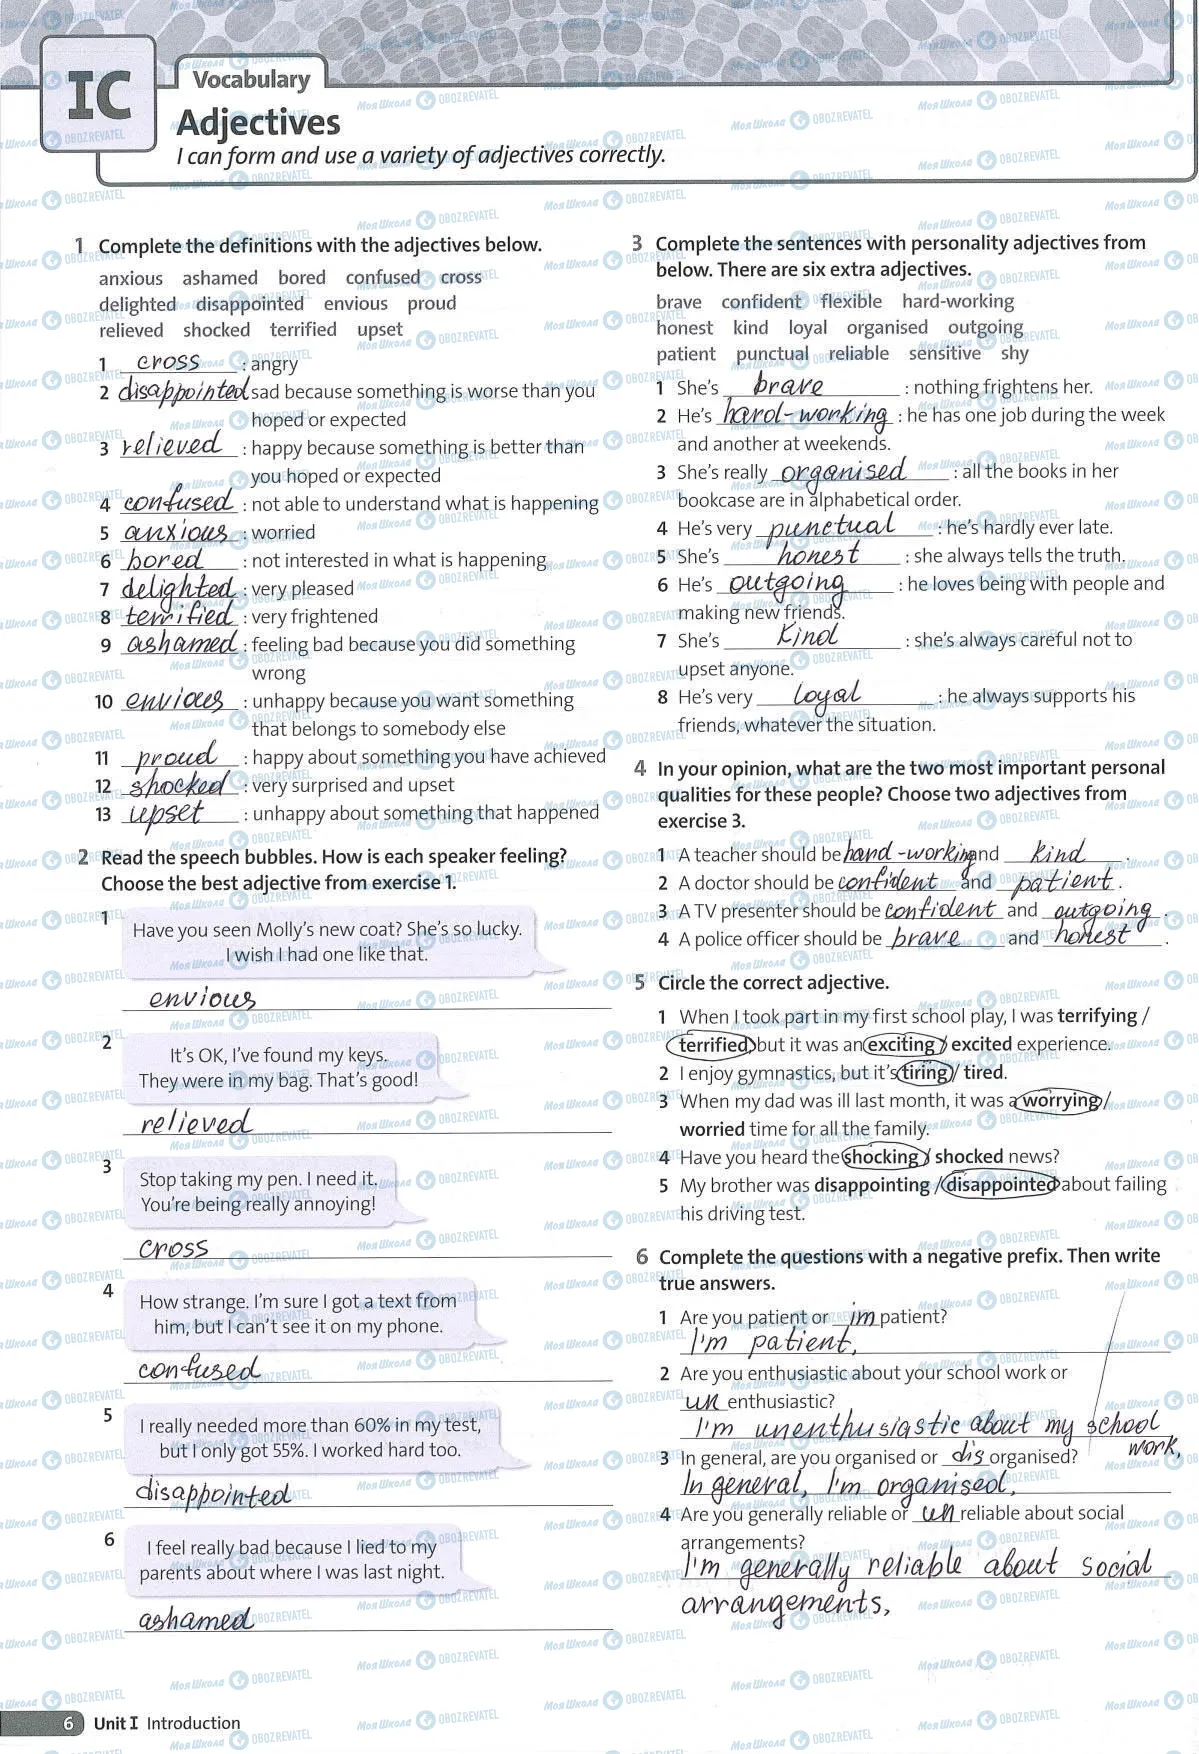 IC
Vocabulary
Adjectives
I can form and use a variety of adjectives correctly.
1 Complete the definitions with the adjectives below.
anxious ashamed bored confused cross
delighted disappointed envious proud
relieved shocked terrified upset
1 cross : angry
2 disappointed sad because something is worse than you
hoped or expected
3 relieved : happy because something is better than
you hoped or expected
4 confused : not able to understand what is happening
5 anxious : worried
6 bored : not interested in what is happening
7 delighted : very pleased
8 terrified : very frightened
9 ashamed : feeling bad because you did something
wrong
10 envious : unhappy because you want something
that belongs to somebody else
11 proud : happy about something you have achieved
12 shocked : very surprised and upset
13 upset : unhappy about something that happened
2 Read the speech bubbles. How is each speaker feeling?
Choose the best adjective from exercise 1.
1 Have you seen Molly's new coat? She's so lucky.
I wish I had one like that.
envious
2 It's OK, I've found my keys.
They were in my bag. That's good!
relieved
3 Stop taking my pen. I need it.
You're being really annoying!
cross
4 How strange. I'm sure I got a text from
him, but I can't see it on my phone.
confused
5 I really needed more than 60% in my test,
but I only got 55%. I worked hard too.
disappointed
6 I feel really bad because I lied to my
parents about where I was last night.
ashamed
3 Complete the sentences with personality adjectives from
below. There are six extra adjectives.
brave confident flexible hard-working
honest kind loyal organised outgoing
patient punctual reliable sensitive shy
1 She's brave : nothing frightens her.
2 He's hard-working : he has one job during the week
and another at weekends.
3 She's really organised : all the books in her
bookcase are in alphabetical order.
4 He's very punctual : he's hardly ever late.
5 She's honest : she always tells the truth.
6 He's outgoing : he loves being with people and
making new friends.
7 She's kind : she's always careful not to
upset anyone.
8 He's very loyal : he always supports his
friends, whatever the situation.
4 In your opinion, what are the two most important personal
qualities for these people? Choose two adjectives from
exercise 3.
1 A teacher should be hard-working and kind .
2 A doctor should be confident and patient .
3 A TV presenter should be confident and outgoing .
4 A police officer should be brave and honest .
5 Circle the correct adjective.
1 When I took part in my first school play, I was terrifying /
terrified, but it was an exciting / excited experience.
2 I enjoy gymnastics, but it's tiring / tired.
3 When my dad was ill last month, it was a worrying /
worried time for all the family.
4 Have you heard the shocking / shocked news?
5 My brother was disappointing / disappointed about failing
his driving test.
6 Complete the questions with a negative prefix. Then write
true answers.
1 Are you patient or im patient?
I'm patient.
2 Are you enthusiastic about your school work or
un enthusiastic?
I'm unenthusiastic about my school
work.
3 In general, are you organised or dis organised?
In general, I'm organised.
4 Are you generally reliable or un reliable about social
arrangements?
I'm generally reliable about social
arrangements.
6 Unit I Introduction
МояШкола OBOZREVATEL